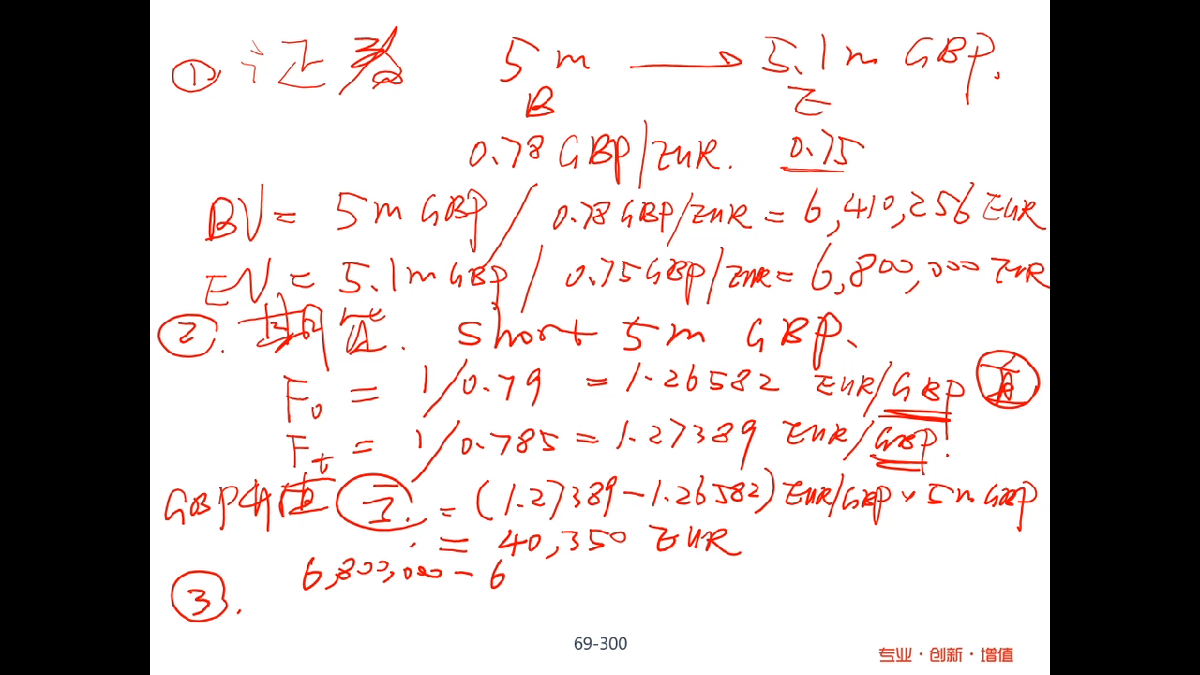 ① 证券 5m → 5.1m GBP.
B E
0.78 GBP/EUR. 0.75
BV = 5m GBP / 0.78 GBP/EUR = 6,410,256 EUR
EV = 5.1m GBP / 0.75 GBP/EUR = 6,800,000 EUR
②. 期货. short 5m GBP.
F₀ = 1/0.79 = 1.26582 EUR/GBP
Ft = 1/0.785 = 1.27389 EUR/GBP.
GBP升值 = (1.27389-1.26582) EUR/GBP × 5m GBP
= 40,350 EUR
③. 6,800,000 - 6
69-300
专业·创新·增值